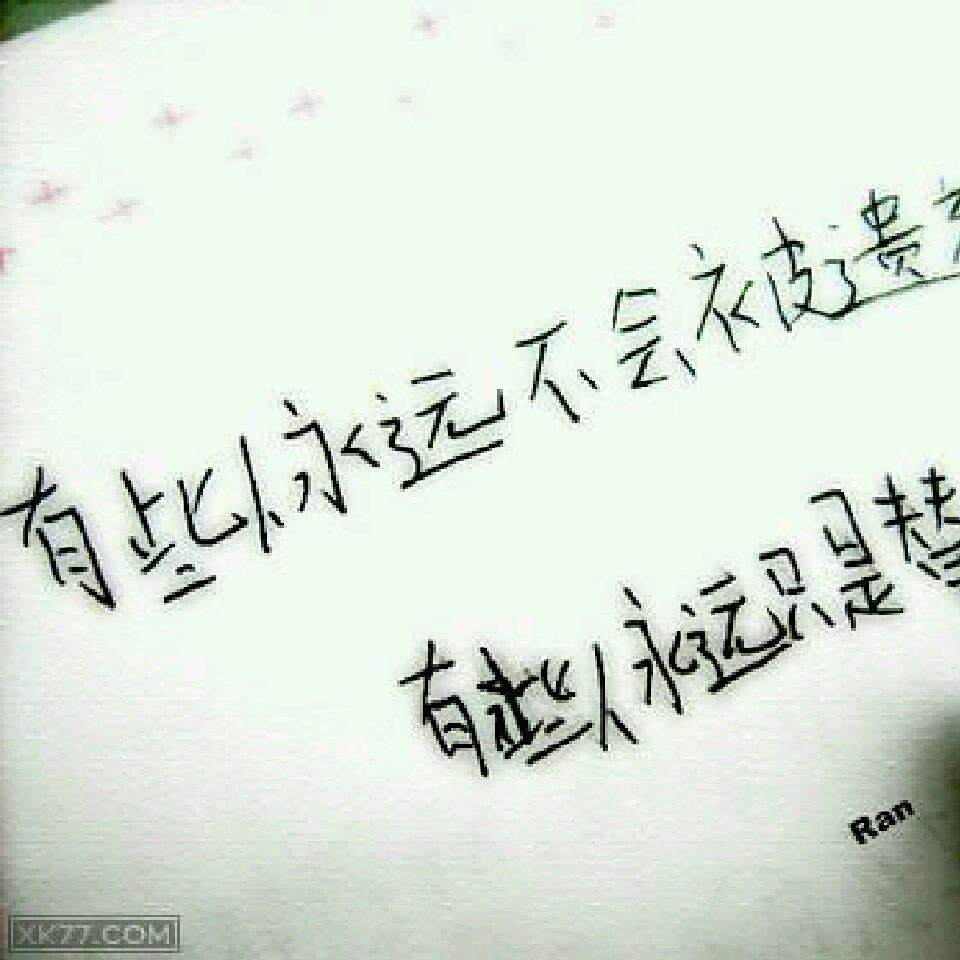 有些人永远不会被遗
有些人永远只是替
Ran
XK77.COM